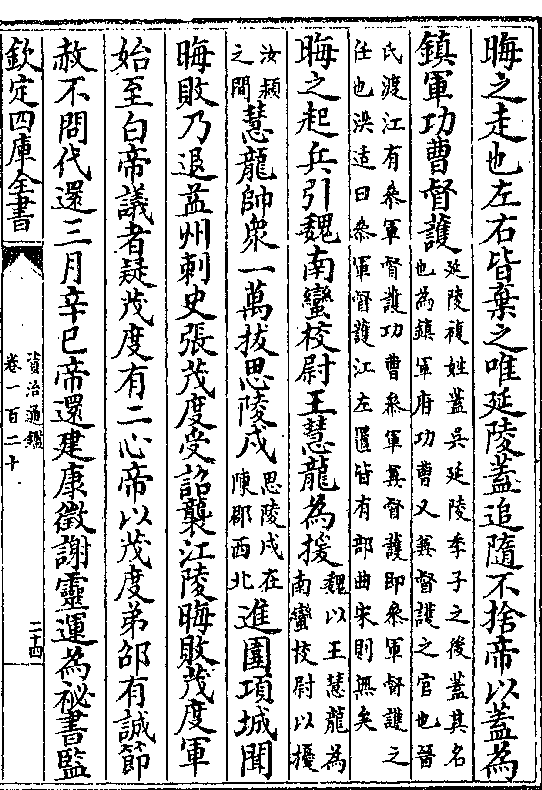 晦之走也左右皆棄之唯延陵蓋追隨不捨帝以蓋為
鎮軍功曹督護
延陵複姓蓋吳延陵季子之後蓋其名
也為鎮軍府功曹又兼督護之官也晉
氏渡江有參軍督護功曹參軍兼督護即參軍督護之
任也洪适曰參軍督護江左置皆有部曲宋則無矣
晦之起兵引魏南蠻校尉王慧龍為援
魏以王慧龍為
南蠻校尉以擾
汝潁
之間
慧龍帥衆一萬拔思陵戍
思陵戍在
陳郡西北
進圍項城聞
晦敗乃退益州刺史張茂度受詔襲江陵晦敗茂度軍
始至白帝議者疑茂度有二心帝以茂度弟邵有誠節
赦不問代還三月辛巳帝還建康徵謝靈運為祕書監
欽定四庫全書
資治通鑑
卷一百二十
二十四